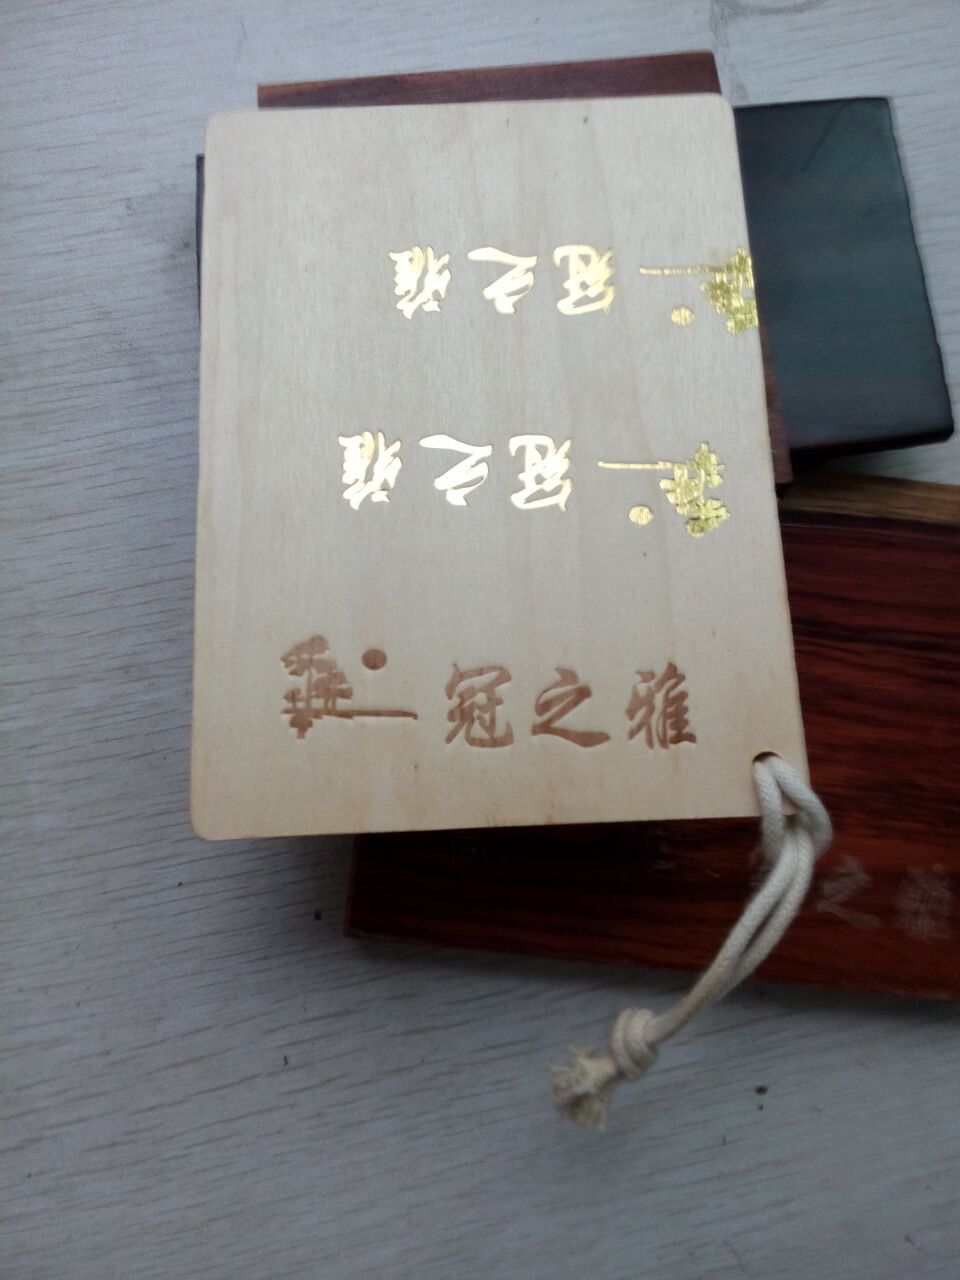 冠之雅
冠之雅
冠之雅